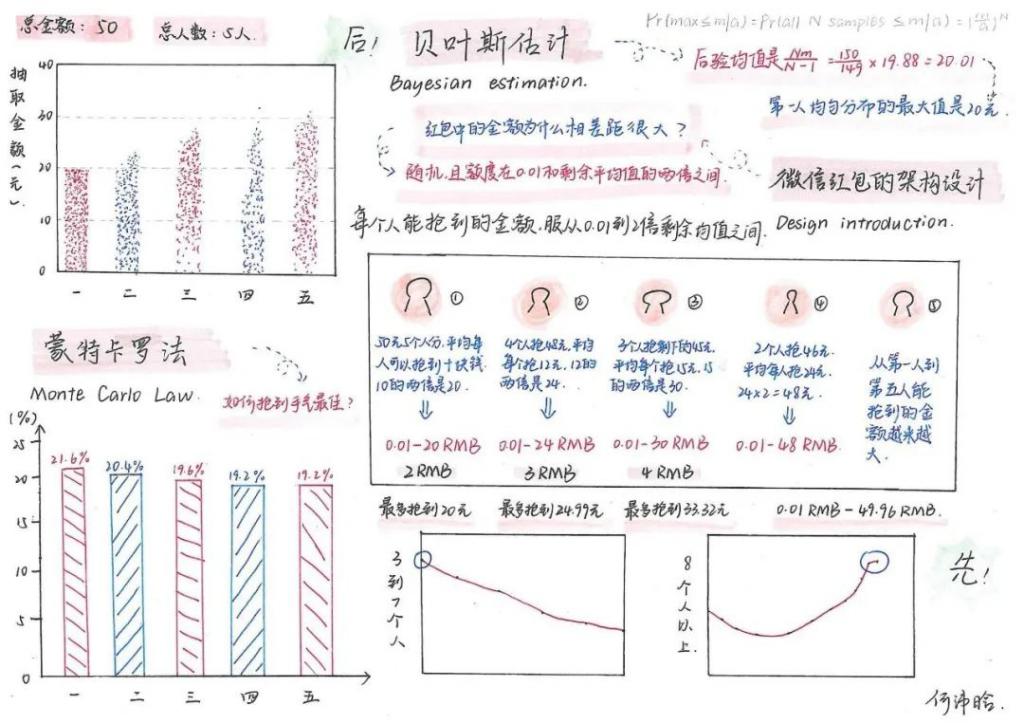 总金额: 50
总人数: 5人.
抽取金额(元)
40
30
20
10
0
一 二 三 四 五
后!
贝叶斯估计
Bayesian estimation.
Pr(max≤m|a)=Pr(all N samples ≤m|a)=
后验均值是 Nm/N-1 = 150/149 × 19.88 = 20.01
第一人均匀分布的最大值是20元.
红包中的金额为什么相差距很大?
随机.且额度在0.01和剩余平均值的两倍之间.
微信红包的架构设计
Design introduction.
每个人能抢到的金额.服从0.01到2倍剩余均值之间.
①
50元5个人分.平均每
人可以抢到十块钱
10的两倍是20.
0.01-20 RMB
2 RMB
②
4个人抢48元.平均
每个抢12元.12的
两倍是24.
0.01-24 RMB
3 RMB
③
3个人抢剩下的45元.
平均每个抢15元.15
的两倍是30.
0.01-30 RMB
4 RMB
④
2个人抢46元.
平均每人抢24元.
24×2=48元.
0.01-48 RMB.
⑤
从第一人到
第五人能
抢到的金
额越来越
大.
最多抢到20元
最多抢到24.99元
最多抢到33.32元
0.01 RMB-49.96 RMB.
蒙特卡罗法
Monte Carlo Law.
如何抢到手气最佳?
(%)
25
20
15
10
5
0
21.6%
20.4%
19.6%
19.2%
19.2%
一 二 三 四 五
3到7个人
8个人以上.
先!